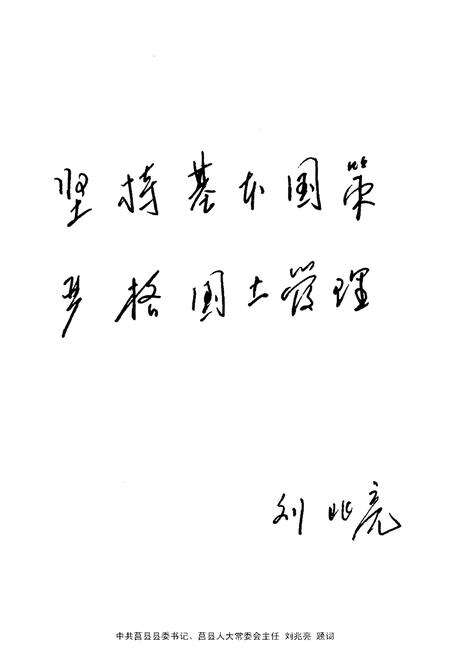 坚持基本国策
严格国土管理
刘兆亮
中共莒县县委书记、莒县人大常委会主任 刘兆亮 题词